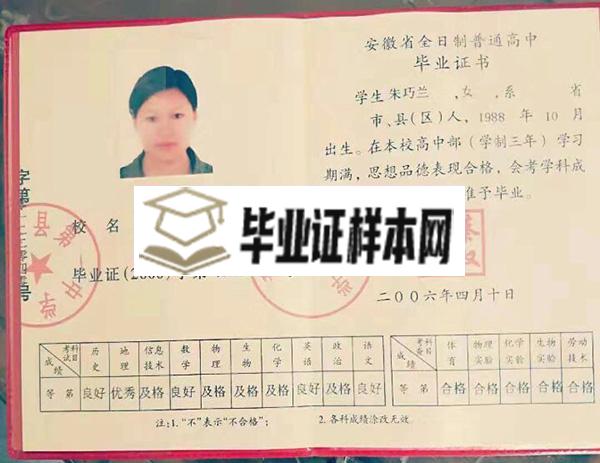 安徽省全日制普通高中
毕业证书
学生 朱巧兰 ,女,系 省
市、县(区)人, 1988 年 10 月
出生。在本校高中部(学制三年)学习
期满，思想品德表现合格，会考学科成
准予毕业。
校名
毕业证(2006)字第
二〇〇六年四月十日
毕业证样本网
字第
号
县第
中学
考试科目 历史 地理 信息技术 数学 物理 生物 化学 英语 政治 语文
成绩
等第 良好 优秀 及格 良好 及格 及格 及格 良好 良好 良好
考查科目 体育 物理实验 化学实验 生物实验 劳动技术
成绩
等第 合格 合格 合格 合格 合格
注:1.“不”表示“不合格”; 2.各科成绩涂改无效。